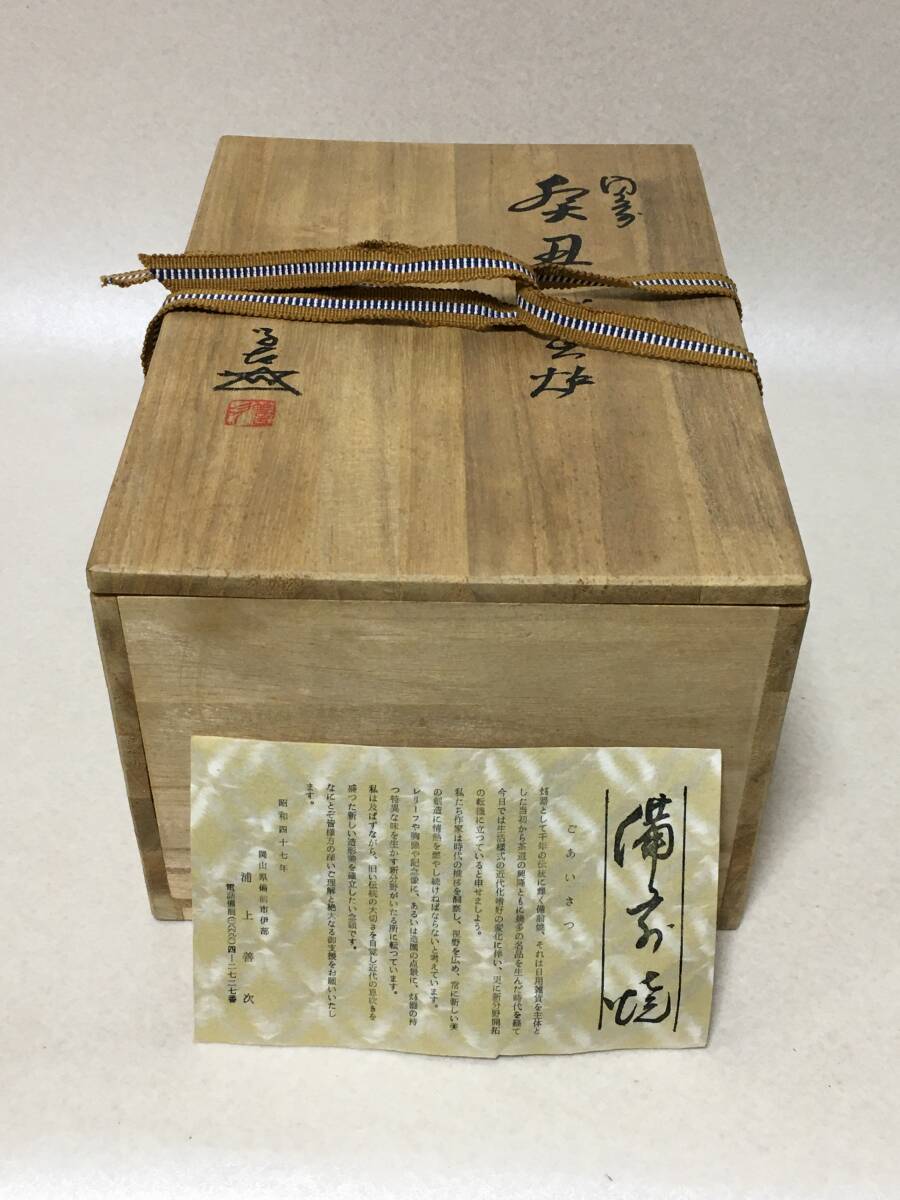 備前
癸丑
炉
善
備前焼
ごあいさつ
炻器として千年の伝統に輝く備前焼、それは日用雑貨を主体と
した当初から茶道の興隆とともに幾多の名品を生んだ時代を経て
今日では生活様式の近代化嗜好の変化に伴い、更に新分野開拓
の転機に立つていると申せましよう。
私たち作家は時代の推移を洞察し、視野を広め、常に新しい美
の創造に情熱を燃やし続けねばならないと考えています。
レリーフや陶額や記念像に、あるいは造園の点景に、炻器の持
つ特異な味を生かす新分野がいたる所に転つています。
私は及ばずながら、旧い伝統の大切さを自覚し近代の息吹きを
盛つた新しい造形美を確立したい念願です。
なにとぞ皆様方の深いご理解と絶大なる御支援をお願いいたし
ます。
昭和四十七年
岡山県備前市伊部
浦上善次
電話備前(〇八六九)四―二七二七番